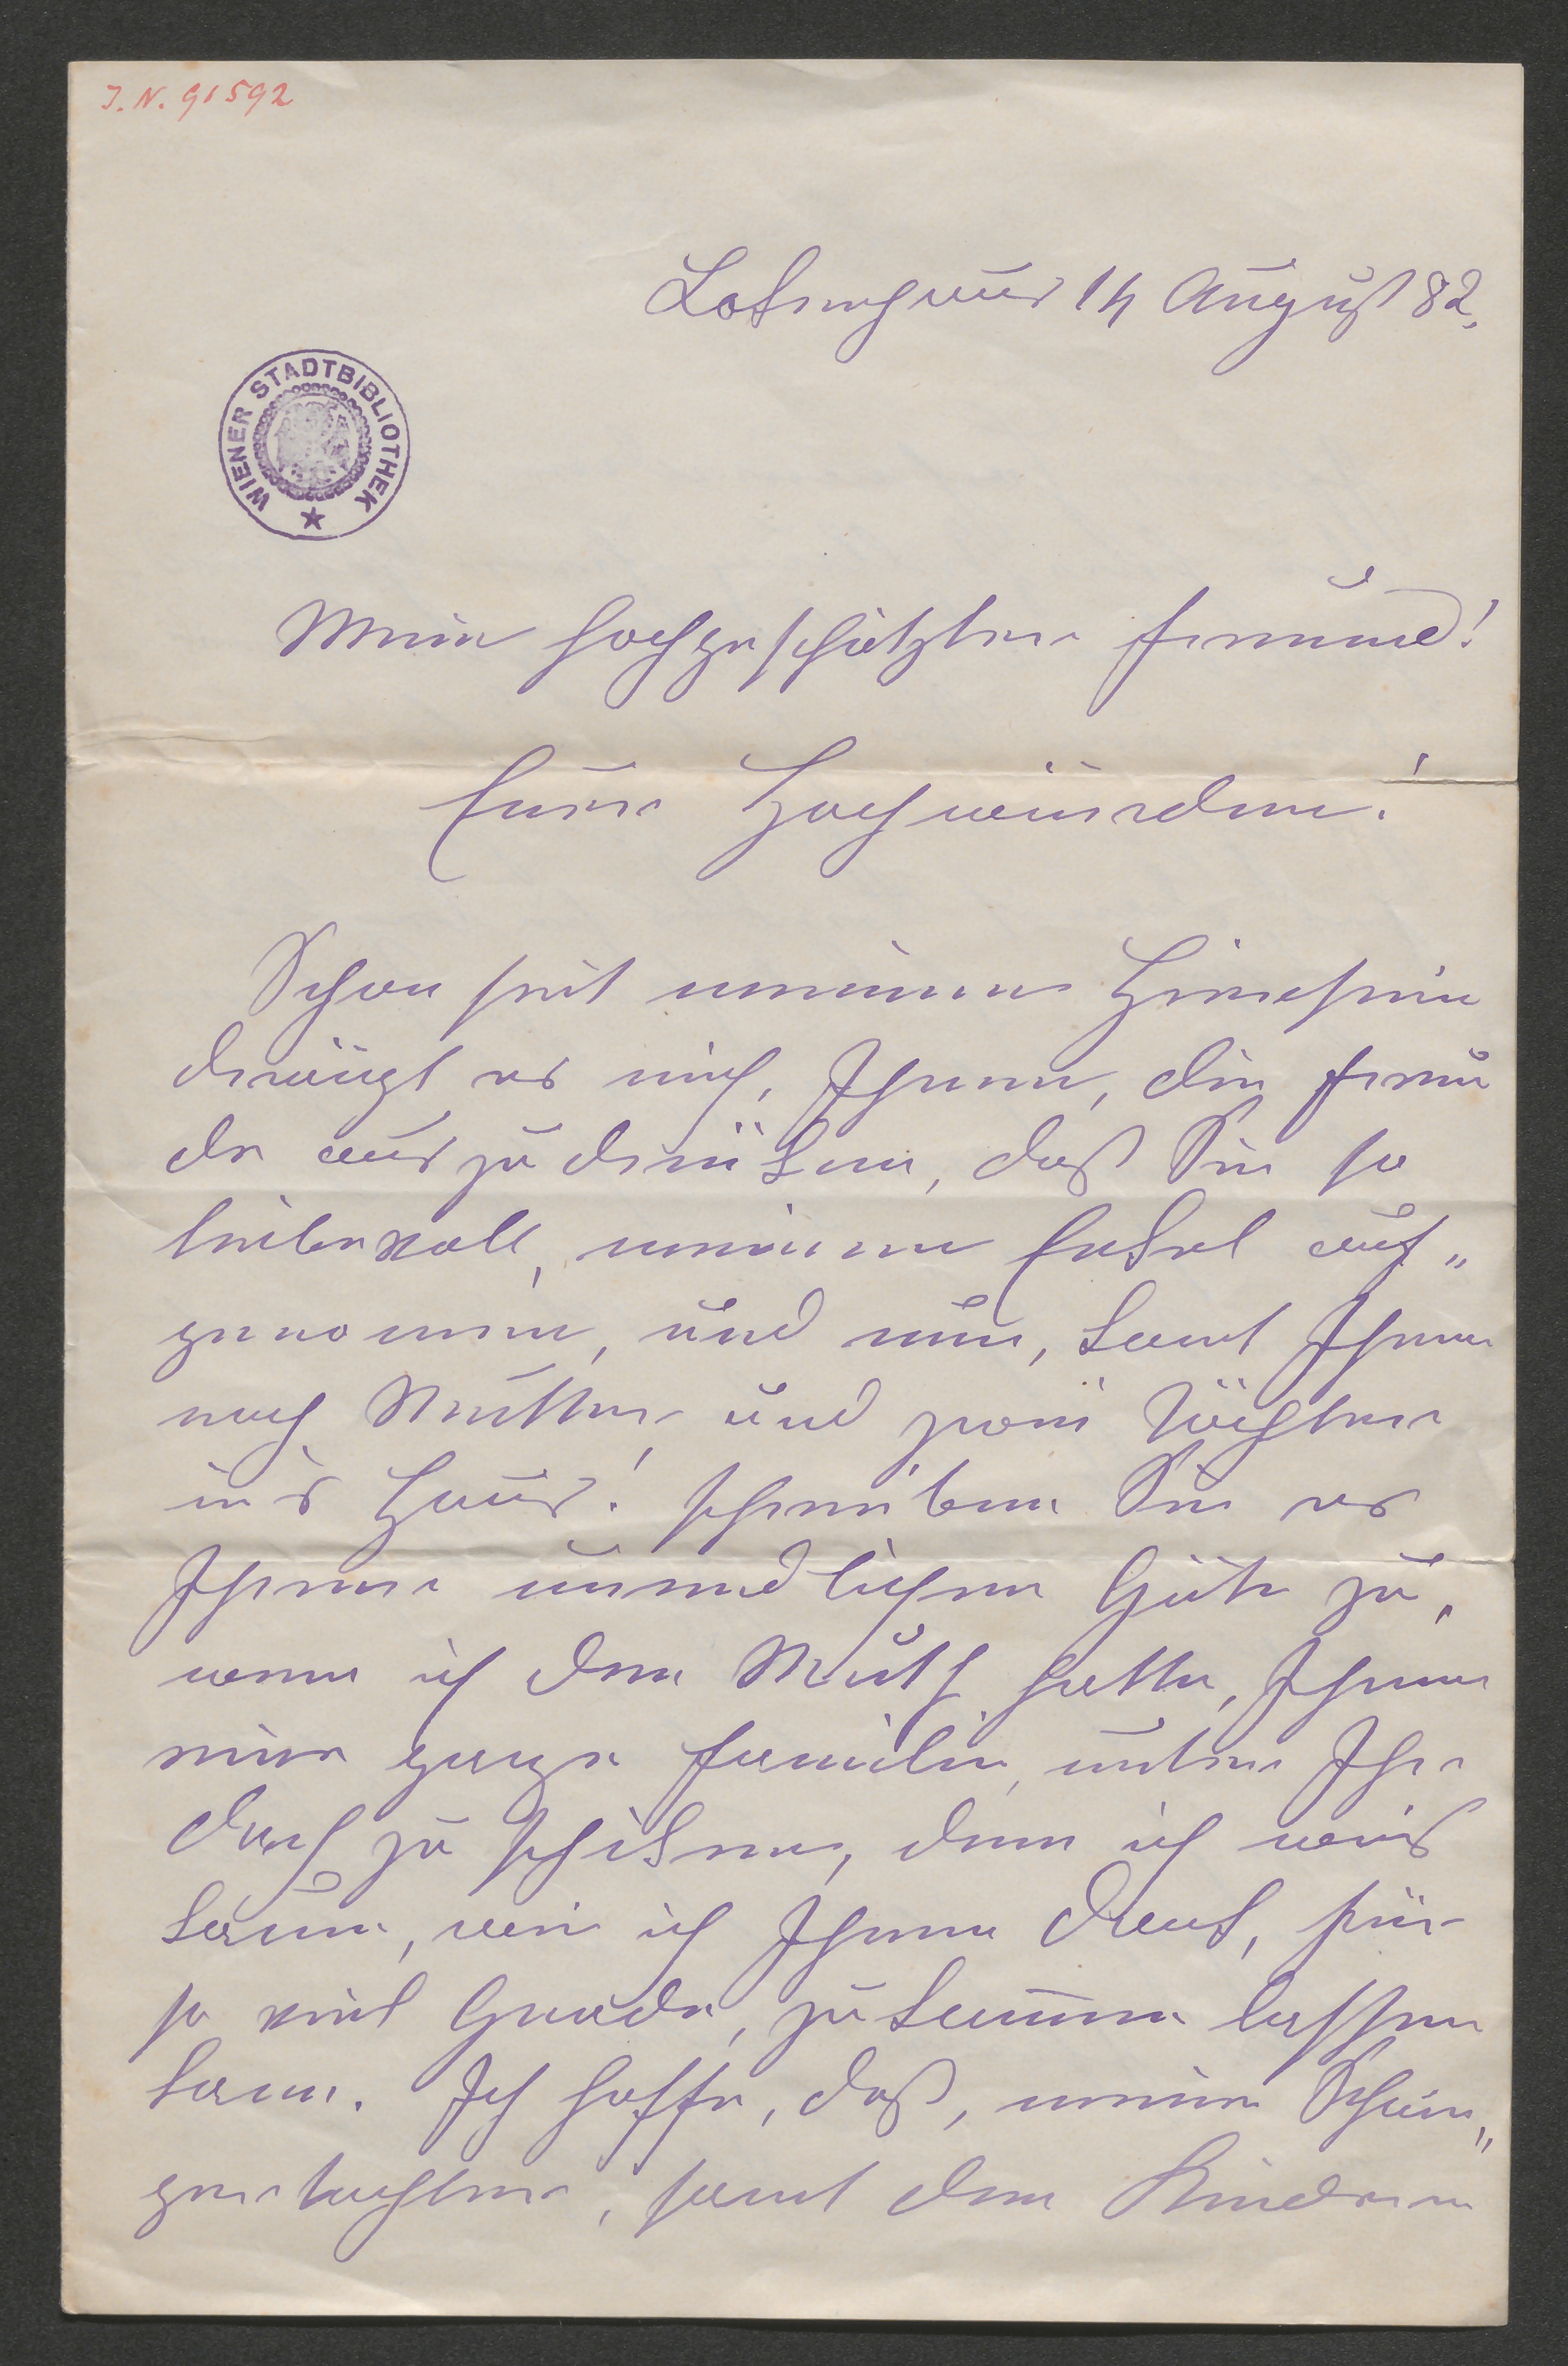 I.N. 91592
Lokenhaus 14 August 82.
WIENER STADTBIBLIOTHEK
Mein hochgeschätzter Freund!
Euer Hochwürden!
Schon seit meinem Hiersein
drängt es mich, Ihnen, die Freu
de auszudrüken, daß Sie so
liebevoll, meinen Enkel auf„
genomen, und nun, kamt Ihnen
noch Mutter und zwei Töchter
in's Haus! schreiben Sie es
Ihrer unendlichen Güte zu,
wenn ich den Muth hatte, Ihnen
eine ganze Familie, unter Ihr
Dach zu schiken, denn ich weis
kaum, wie ich Ihnen Dank, für
so viel Gnade, zukommen lassen
kann. Ich hoffe, daß, meine Schwie„
gertochter, samt den Kindern